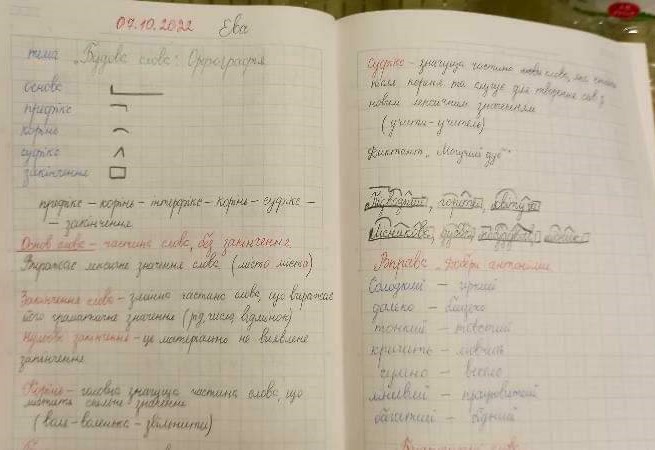 07.10.2022 Ева
тема „Будова слова. Орфографія
основа
префікс
корінь
суфікс
закінчення
префікс – корінь – інтерфікс – корінь – суфікс –
– закінчення
Основа слова – частина слова, без закінчення.
Виражає лексичне значення слова. (місто міста)
Закінчення слова – змінна частина слова, що виражає
його граматичне значення (рд, число, відмінок)
Нульове закінчення – це матеріально не виявлене
закінчення
Корінь – головна значуща частина слова, що
містить спільне значення
(воля – воленька – звільнити)
Суфікс – значуща частина слова, яка стоїть
після кореня та служе для творення слів з
новим лексичним значенням
(учити – учитель)
Диктант „Могучий дуб"
Вправа „Добери антоніми
Солодкий – гіркий
далеко – близько
тонкий – товстий
кричить – мовчить
сумно – весело
лінивий – працьовитий
багатий – бідний